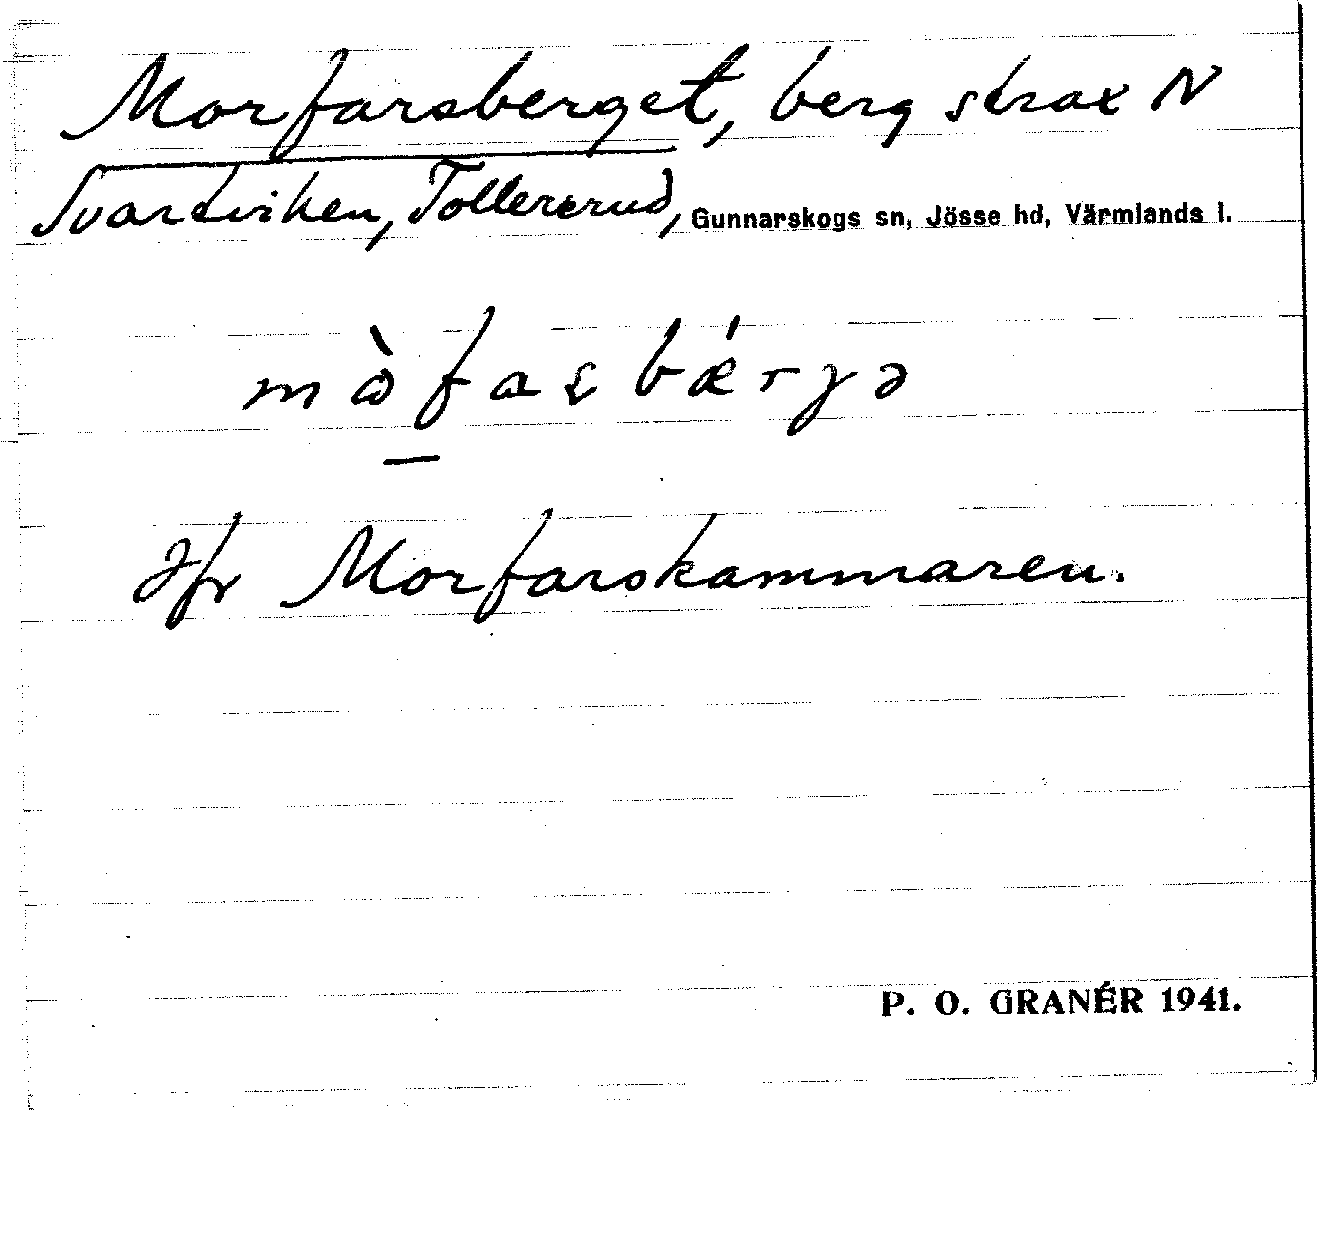 Morfarsberget, berg strax N
Svartviken, Tollererud, Gunnarskogs sn, Jösse hd, Värmlands l.
Jfr Morfarskammaren.
P. O. GRANÉR 1941.